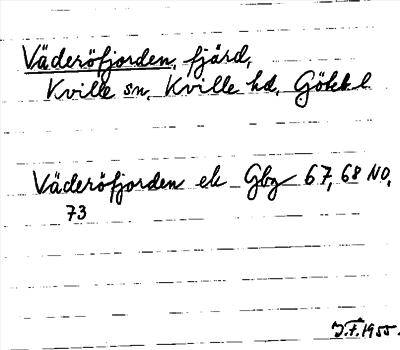 Väderöfjorden, fjärd,
Kville sn, Kville hd, Gbkbl
Väderöfjorden ek Gbg 67, 68 NO,
73
J.F. 1955.